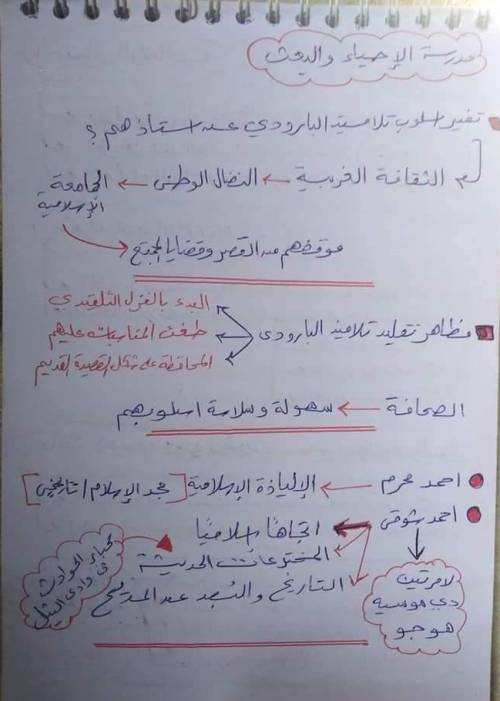 مدرسة الإحياء والبعث
تغير اسلوب تلاميذ البارودي عن استاذهم ؟
الثقافة الغربية ← النضال الوطني ← الجامعة الإسلامية
موقفهم من القصر وقضايا المجتمع
مظاهر تقليد تلاميذ البارودى
البدء بالغزل التقليدي
طغت المناسبات عليهم
المحافظة على شكل القصيدة القديم
الصحافة ← سهولة وسلاسة اسلوبهم
احمد محرم ← الإلياذة الإسلامية [مجد الإسلام / تاريخي]
احمد شوقى
اتجاهًا اسلاميًا
المخترعات الحديثة
التاريخ والبُعد عن المديح
كبار الحوادث فى وادى النيل
لامرتين
دي موسيه
هوجو